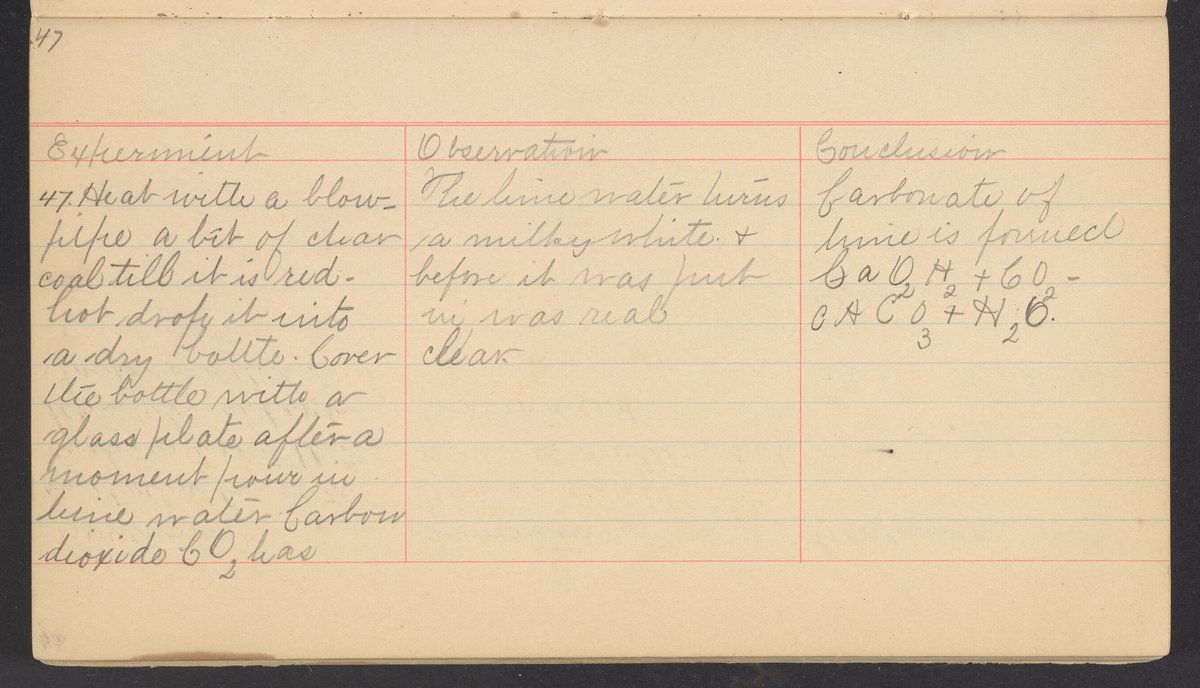 47
Experiment
47. Heat with a blow-
pipe a bit of char
coal till it is red-
hot drop it into
a dry bottle. Cover
the bottle with a
glass plate after a
moment pour in
lime water Carbon
dioxide CO2 has
Observation
The lime water turns
a milky white. &
before it was put
in was real
clear.
Conclusion
Carbonate of
lime is formed
CaO2H2 + CO2 -
CACO3 + H2O.